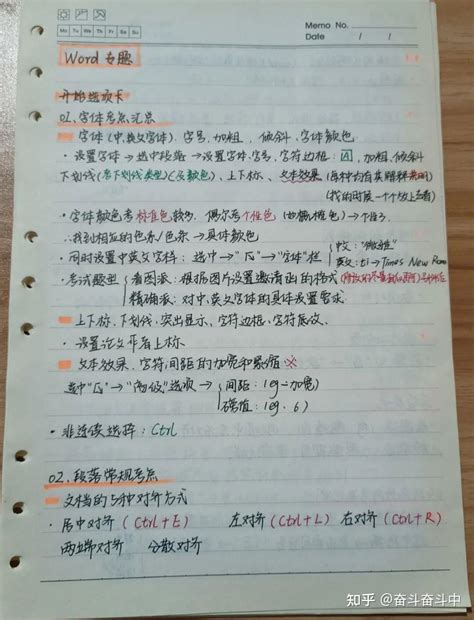 Memo No.
Mo Tu We Th Fr Sa Su
Date / /
Word 专题
开始选项卡
01、字体考点汇总
字体(中、英文字体)、字号、加粗、倾斜、字体颜色
· 设置字体→选中段落→设置字体、字号、字符边框:A,加粗、倾斜
下划线(考下划线类型)(及颜色)、上下标、文本效果(每种均有其解释说明)
(找的时候一个个放上去看)
· 字体颜色考标准色较多,偶尔考个性色
∴找到相应的色系/色条→具体颜色
· 同时设置中英文字体:选中→“字体”栏
中文:“微雅”
英文:ti→Times New Roman
· 考试题型
看图派:根据图片设置邀请函的格式
精确派:对中、英文字体的具体设置要求
上下标、下划线、突出显示、字符边框、字符底纹、
· 设置论文开启上标
文本效果、字符间距的加宽和紧缩※
选中→“高级”选项→
间距:(eg→加宽)
磅值:(eg、6)
· 非连续选择:Ctrl
02、段落常规考点
文档的5种对齐方式
· 居中对齐(Ctrl+E) 左对齐(Ctrl+L) 右对齐(Ctrl+R)
两端对齐 分散对齐
知乎 @奋斗奋斗中